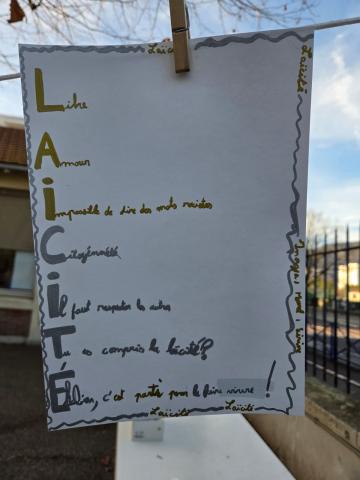 Laïcité
Laïcité
Libre
Amour
Impossible de dire des mots racistes
Citoyenneté
Il faut respecter les autres
Tu as compris la laïcité?
Élian, c'est parti pour la faire vivre!
Laïcité
Laïcité